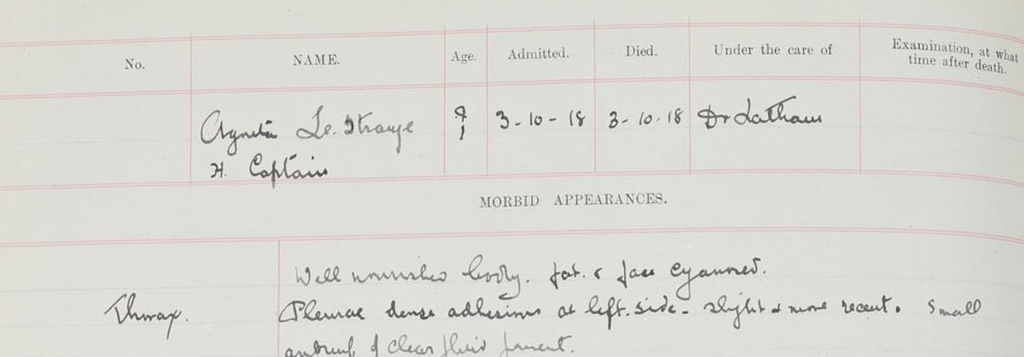 No. NAME. Age. Admitted. Died. Under the care of Examination, at what
time after death.
Le Strange 3-10-18 3-10-18 Dr Latham
H. Captain
MORBID APPEARANCES.
Well nourished body. fat. & face cyanosed.
Thorax. Pleurae dense adhesions at left side - slight & more recent. Small
amount of clear fluid present.